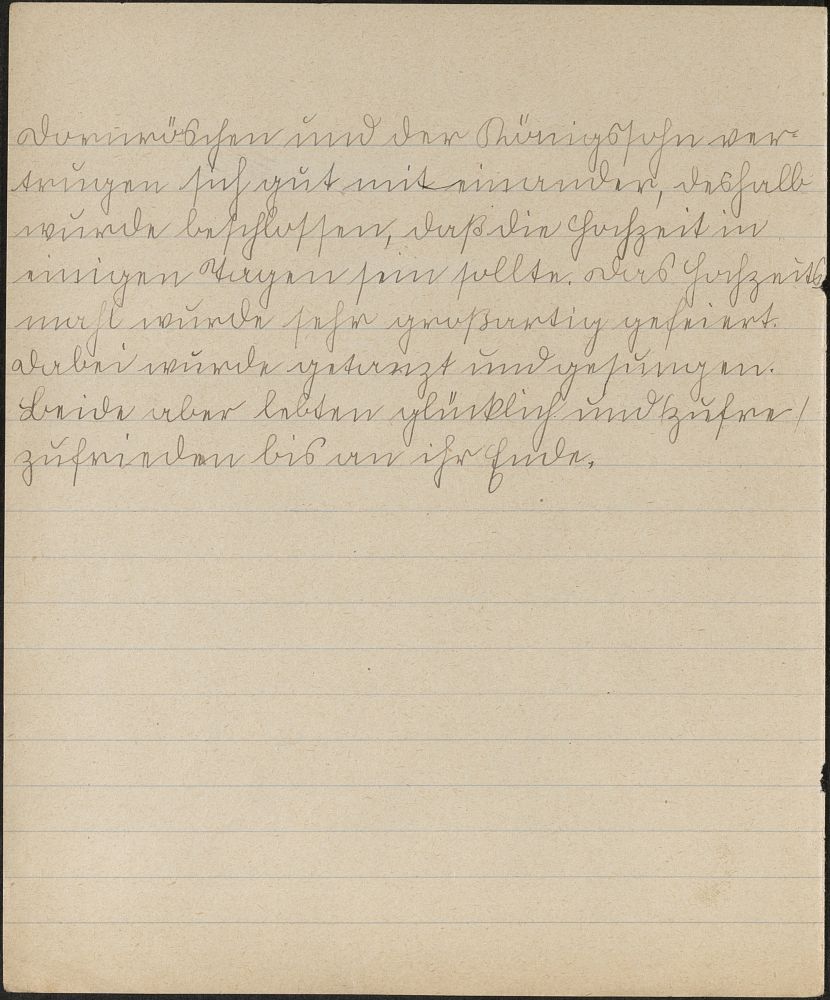 Dornröschen und der Königssohn ver-
trugen sich gut mit einander, deshalb
wurde beschlossen, daß die Hochzeit in
einigen Tagen sein sollte. Das Hochzeits
mahl wurde sehr großartig gefeiert.
Dabei wurde getanzt und gesungen.
Beide aber lebten glücklich und zufre/
zufrieden bis an ihr Ende.